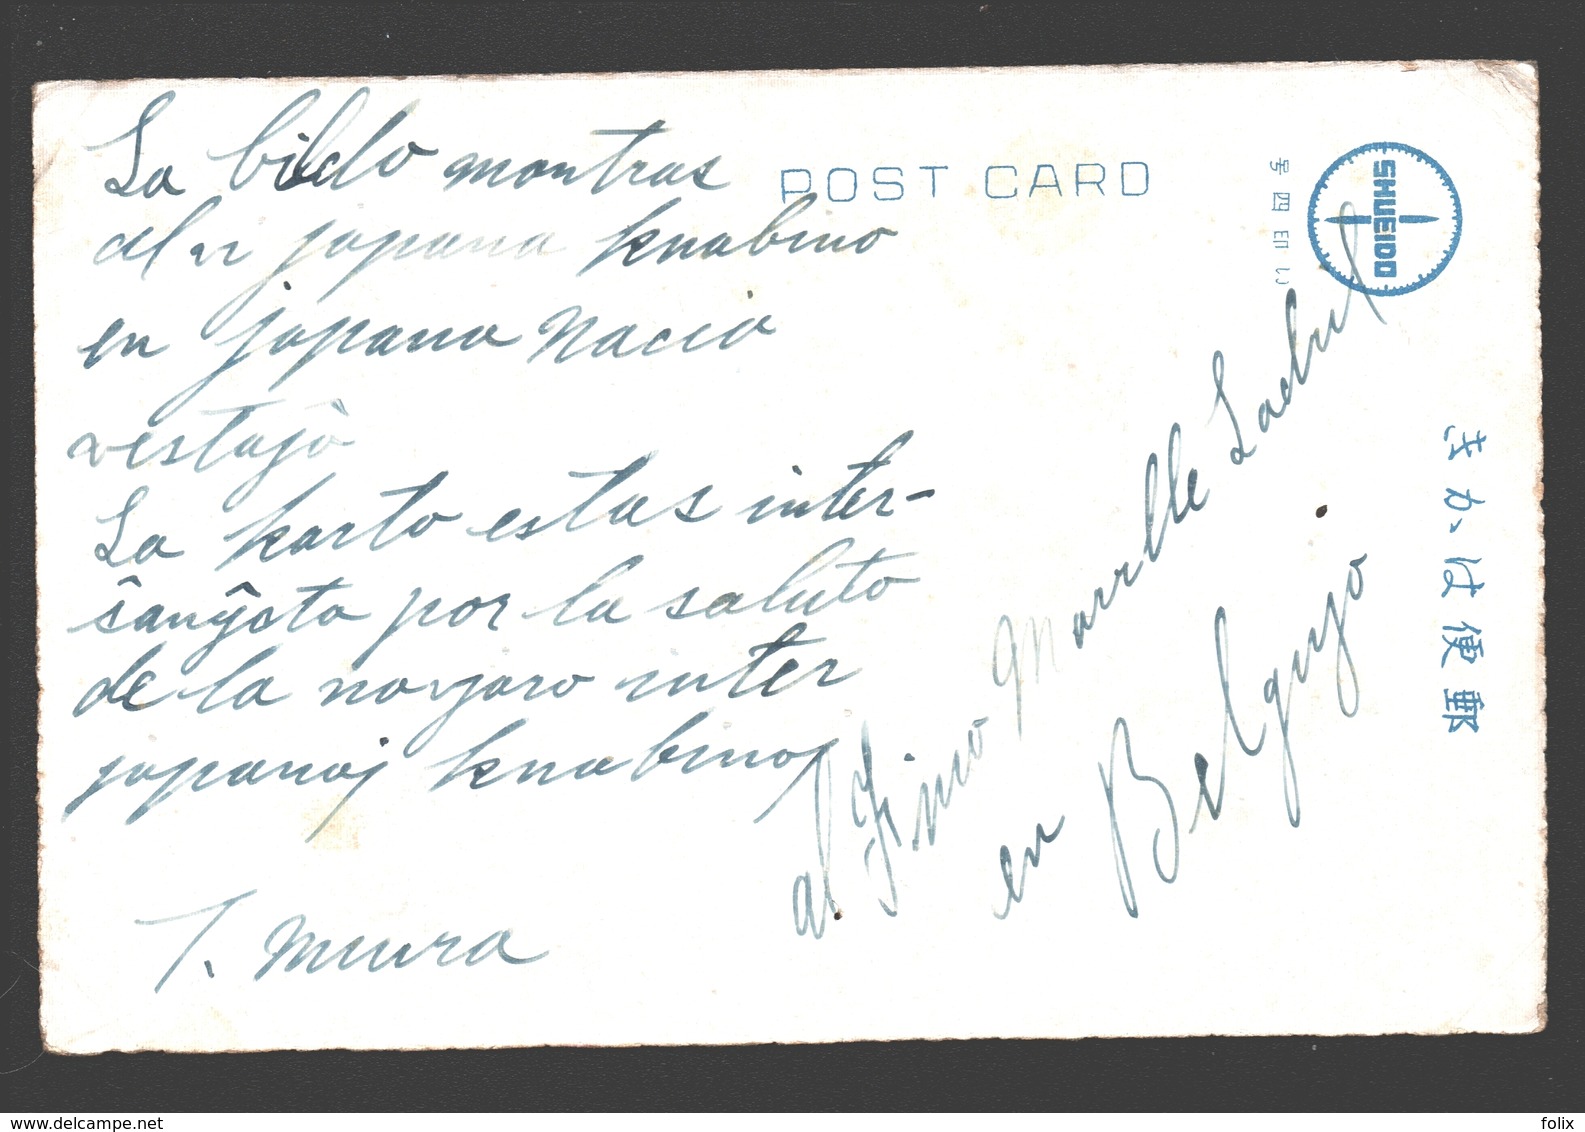 La bildo montras
al vi japana knabino
en japana nacia
vestajô
La karto estas inter-
ŝanĝota por la saluto
de la navjaro inter
japanaj knabinoj
T. Miura
POST CARD
SHUEIDO
号四印い
きかは便郵
al Fino Marcelle Ladrut
en Belgujo
felix
www.delcampe.net